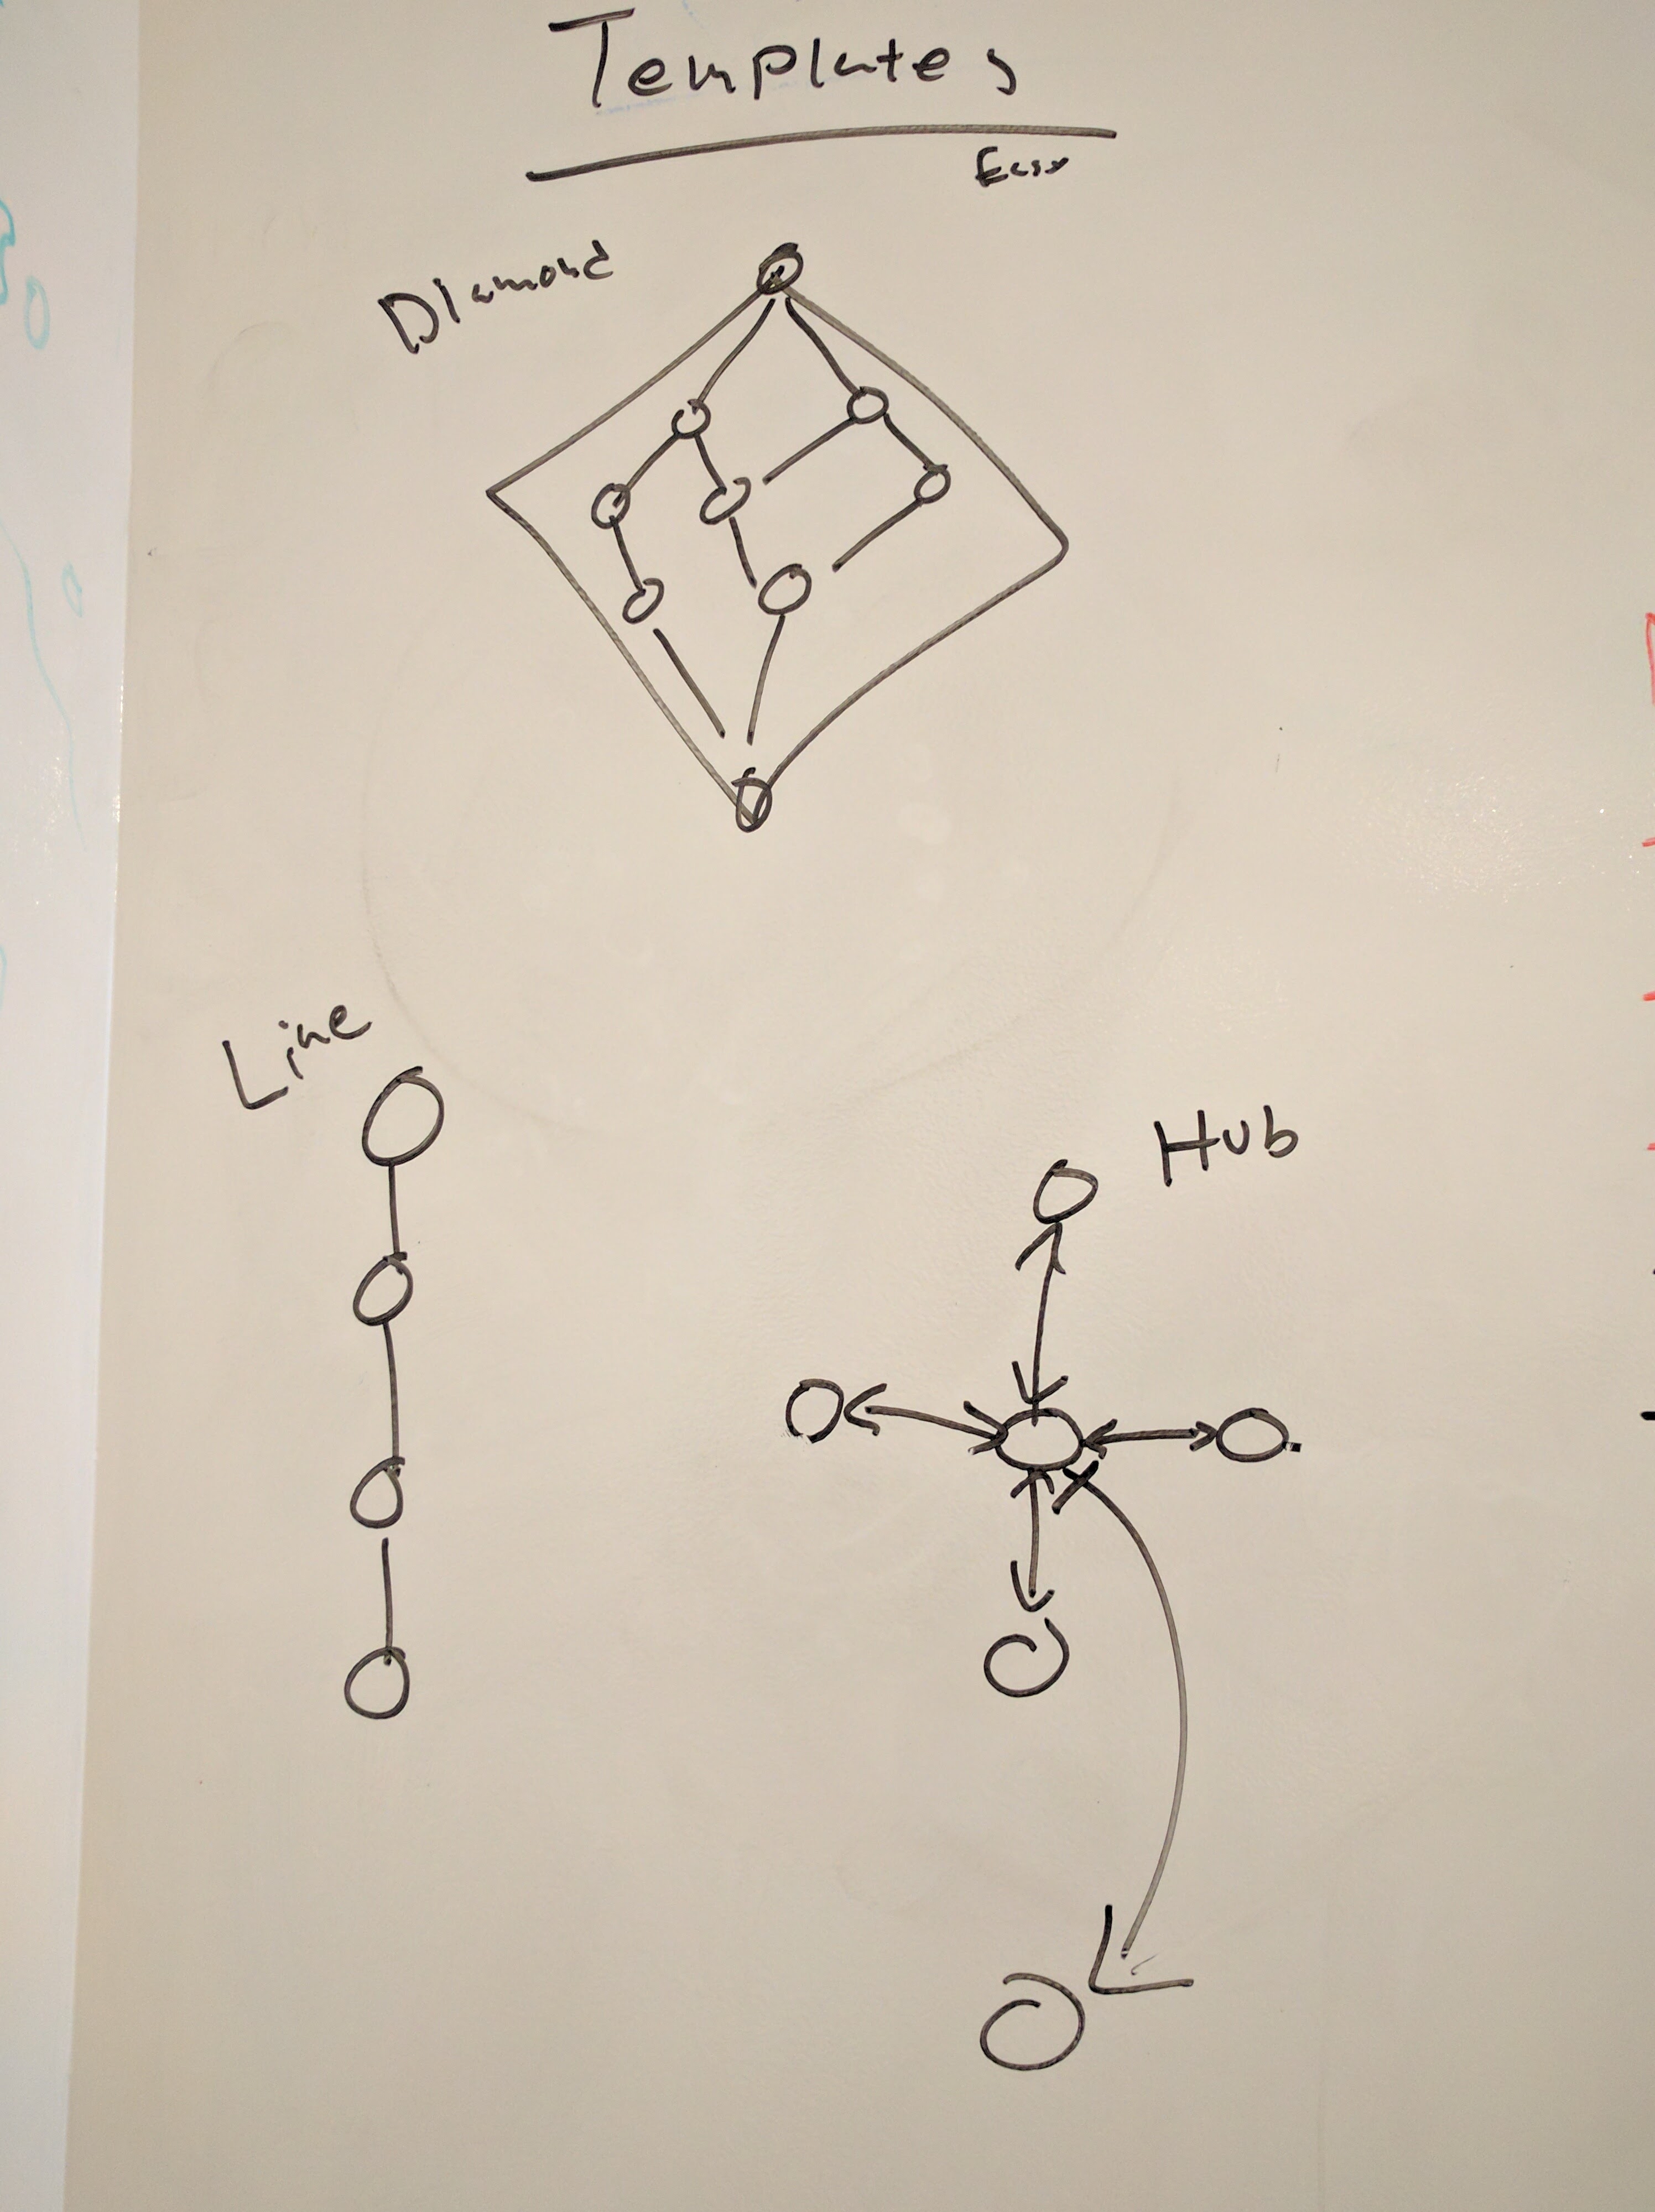 Templates
Easy
Diamond
Line
Hub